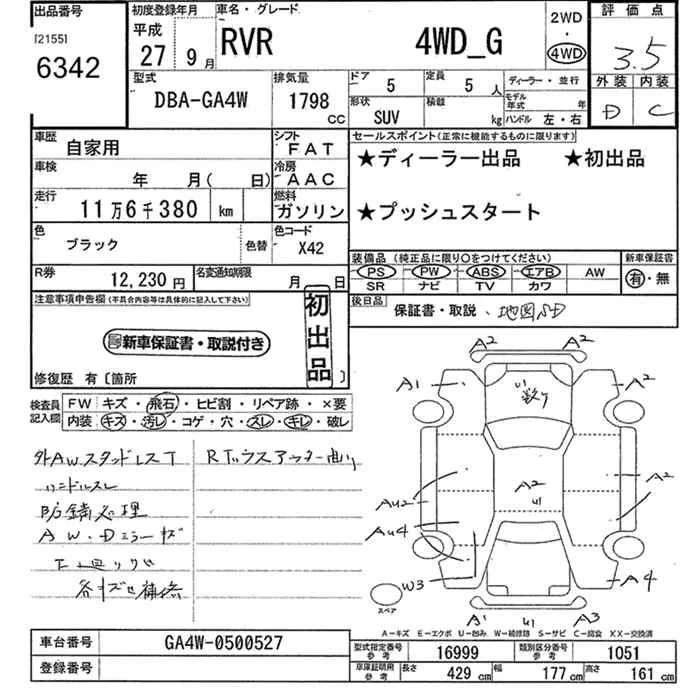 出品番号
[2155]
6342
初度登録年月
平成
27 9月
車名・グレード
RVR 4WD_G
2WD
・
4WD
評価点
3.5
外装 内装
D C
型式
DBA-GA4W
排気量
1798
CC
ドア
5
定員
5 人
形状
SUV
積載
kg
ディーラー・並行
モデル年式 年
ハンドル 左・右
車歴
自家用
シフト
FAT
車検
年 月( 日)
冷房
AAC
走行
11万6千380 km
燃料
ガソリン
色
ブラック
色替
色コード
X42
R券
12,230円
名変通知期限
月 日
セールスポイント(正常に機能するものに限ります)
★ディーラー出品 ★初出品
★プッシュスタート
装備品 (純正品に限り○をつけてください)
PS PW ABS エアB AW
SR ナビ TV カワ
新車保証書
有・無
後日品
保証書・取説、地図SD
注意事項申告欄(不具合内容等は具体的に記入して下さい)
新車保証書・取説付き
初出品
修復歴 有〔箇所 〕
検査員記入欄
FW キズ・飛石・ヒビ割・リペア跡・×要
内装 キズ・汚レ・コゲ・穴・スレ・キレ・破レ
外AWスタッドレスT
ハンドルスレ
防錆処理
AW・Dミラーキズ
下廻りサビ
各キズせ補修
A2 A2
A1 A2
U1
数ケ
A2
U1
AU2 A2
AU4
W3 A4
A1 U1 A3
スペア
A-キズ E-エクボ U-凹み W-補修跡 S-サビ C-腐食 XX-交換済
車台番号
GA4W-0500527
登録番号
型式指定番号
参考
16999
類別区分番号
参考
1051
車庫証明用
参考
長さ 429 cm 幅 177 cm 高さ 161 cm